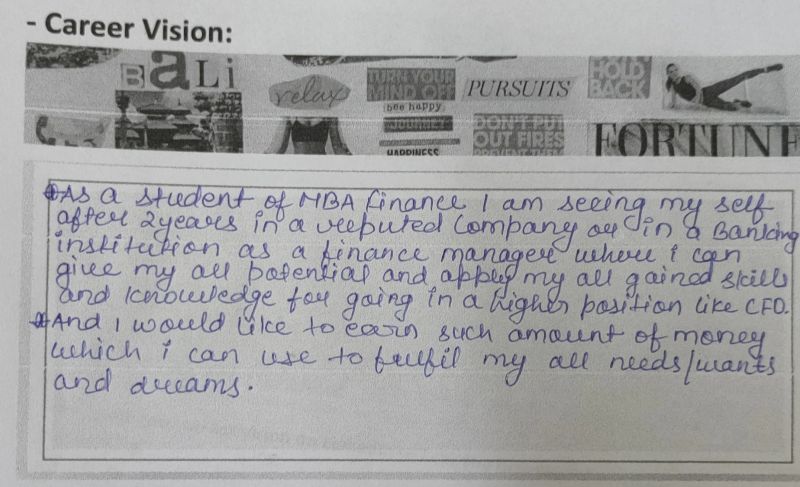 - Career Vision:
BALi
relax
TURN YOUR
MIND OFF
bee happy
JOURNEY
HAPPINESS
PURSUITS
DON'T PUT
OUT FIRES
PREVENT THEM
HOLD
BACK
FORTUNE
As a student of MBA finance I am seeing my self
after 2 years in a reeputed Company or in a Banking
institution as a finance manager where i can
give my all potential and apply my all gained skills
and knowledge for going in a higher position like CFO.
And I would like to earn such amount of money
which i can use to fulfil my all needs/wants
and dreams.